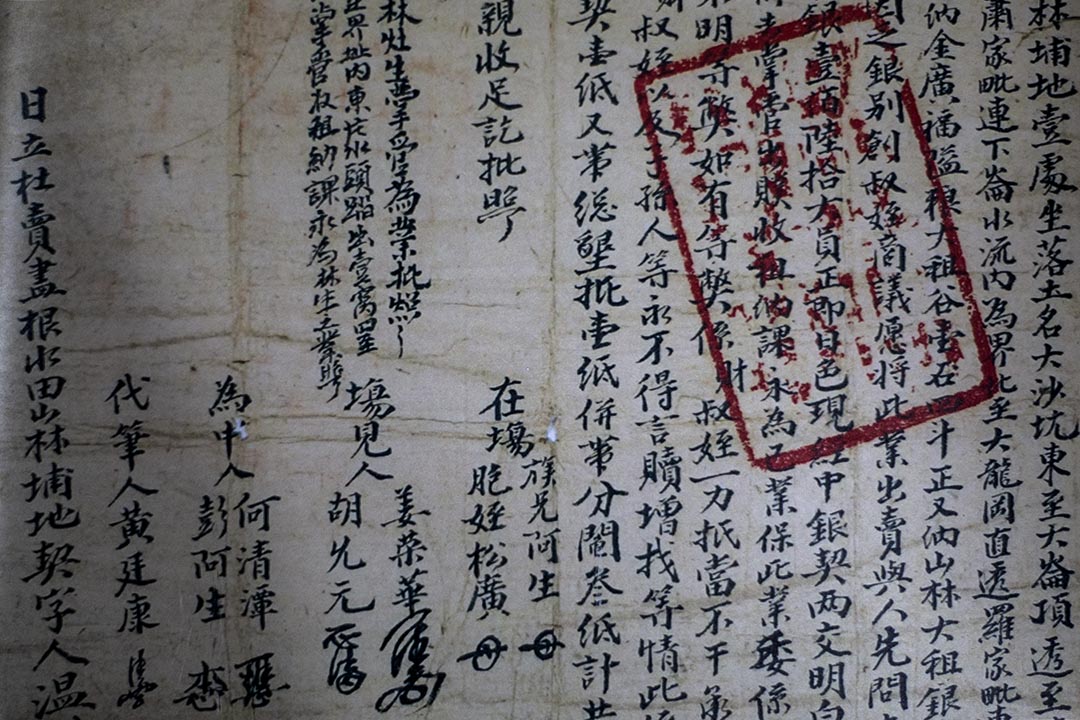 林埔地壹處坐落土名大沙坑東至大崙頂透至
肅家毗連下崙水流內為界北至大龍岡直透羅家毗
納金廣福隘粮大租谷壹石四斗正又納山林大租銀
因之銀别創叔姪商議愿將此業出賣與人先問
銀壹佰陸拾大員正即日色現經中銀契两交明白
前去掌管出贌收租納課永為己業保此業委係
不明等弊如有等弊係財叔姪一力抵當不干承
叔姪以及子孫人等永不得言贖增找等情此係
契壹紙又帶総墾批壹紙併帶分鬮叁紙計共
親收足訖批照
在塲族兄阿生
胞姪松廣
林灶生掌管為業批照
界址內東片水頭踏出壹窩四至
掌管收租納課永為林生己業批
塲見人姜荣華
胡兆元
為中人何清潭
彭阿生
代筆人黄廷康
日立杜賣盡根水田山林埔地契字人温